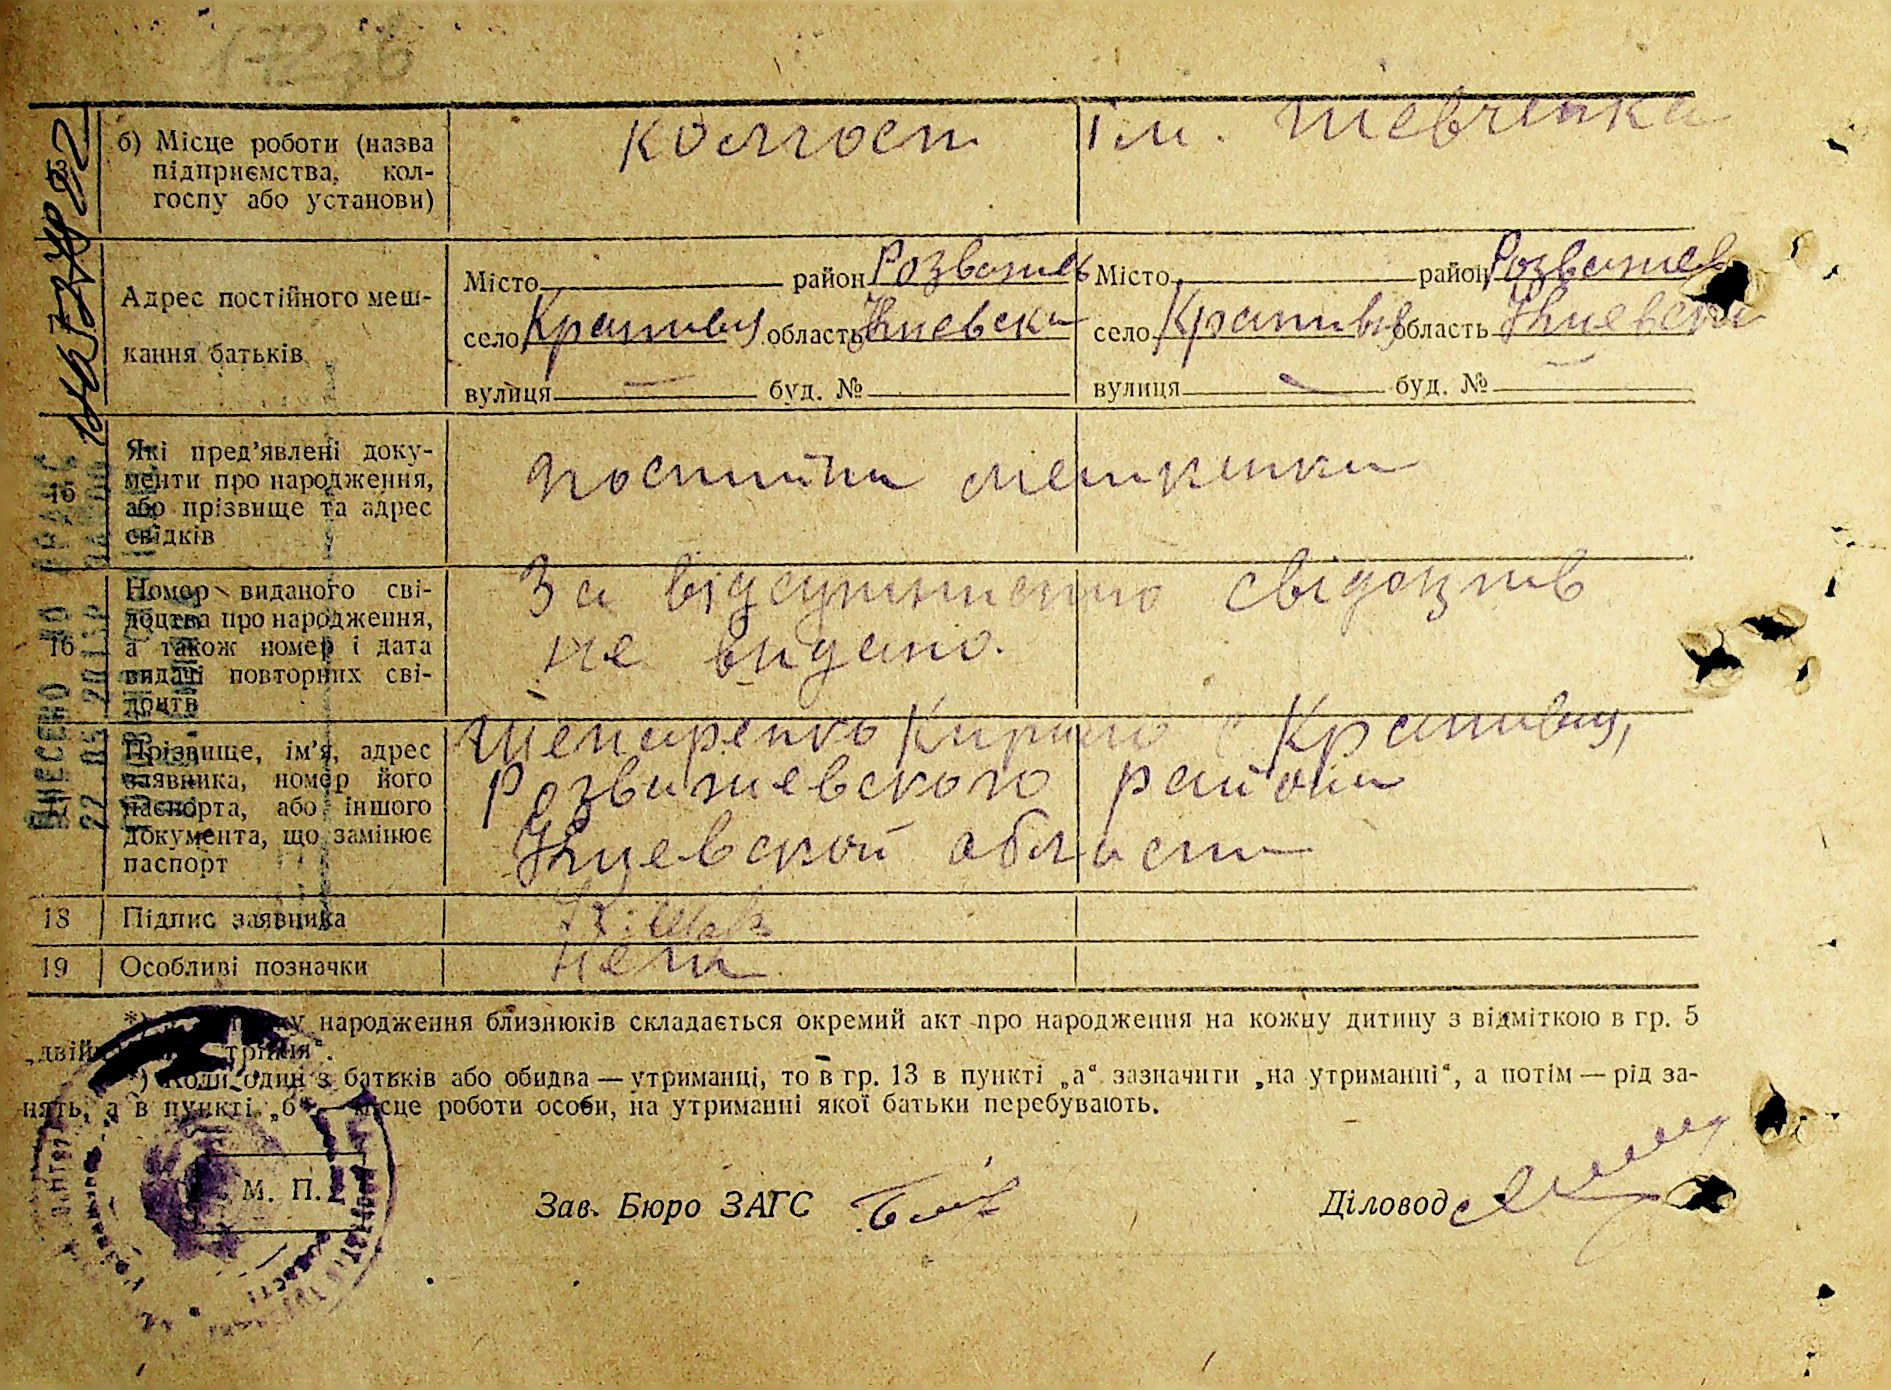 б) Місце роботи (назва підприємства, колгоспу або установи)
колгосп ім. Шевченка
Адрес постійного меш-
кання батьків
Місто район Розважев Місто район Розважев
село Крапивня область Киевска село Крапивня область Киевска
вулиця — буд. № вулиця — буд. № —
15
Які пред’явлені доку-
менти про народження,
або прізвище та адрес
свідків
постійни мешканки
16
Номер виданого сві-
доцтва про народження,
а також номер і дата
видачі повторних сві-
доцтв
За відсутністю свідоцтв
не видано.
Прізвище, ім’я, адрес
заявника, номер його
паспорта, або іншого
документа, що замінює
паспорт
Кирило с Крапивня,
Розважевского района
Киевской области
18 Підпис заявника
19 Особливі позначки
нема
ВНЕСЕНО ДО
народження близнюків складається окремий акт про народження на кожну дитину з відміткою в гр. 5
„двій трійня“.
) Коли один з батьків або обидва — утриманці, то в гр. 13 в пункті „а“ зазначити „на утриманні“, а потім — рід за-
нять, а в пункті „б“ — місце роботи особи, на утриманні якої батьки перебувають.
М. П.
Зав. Бюро ЗАГС
Діловод